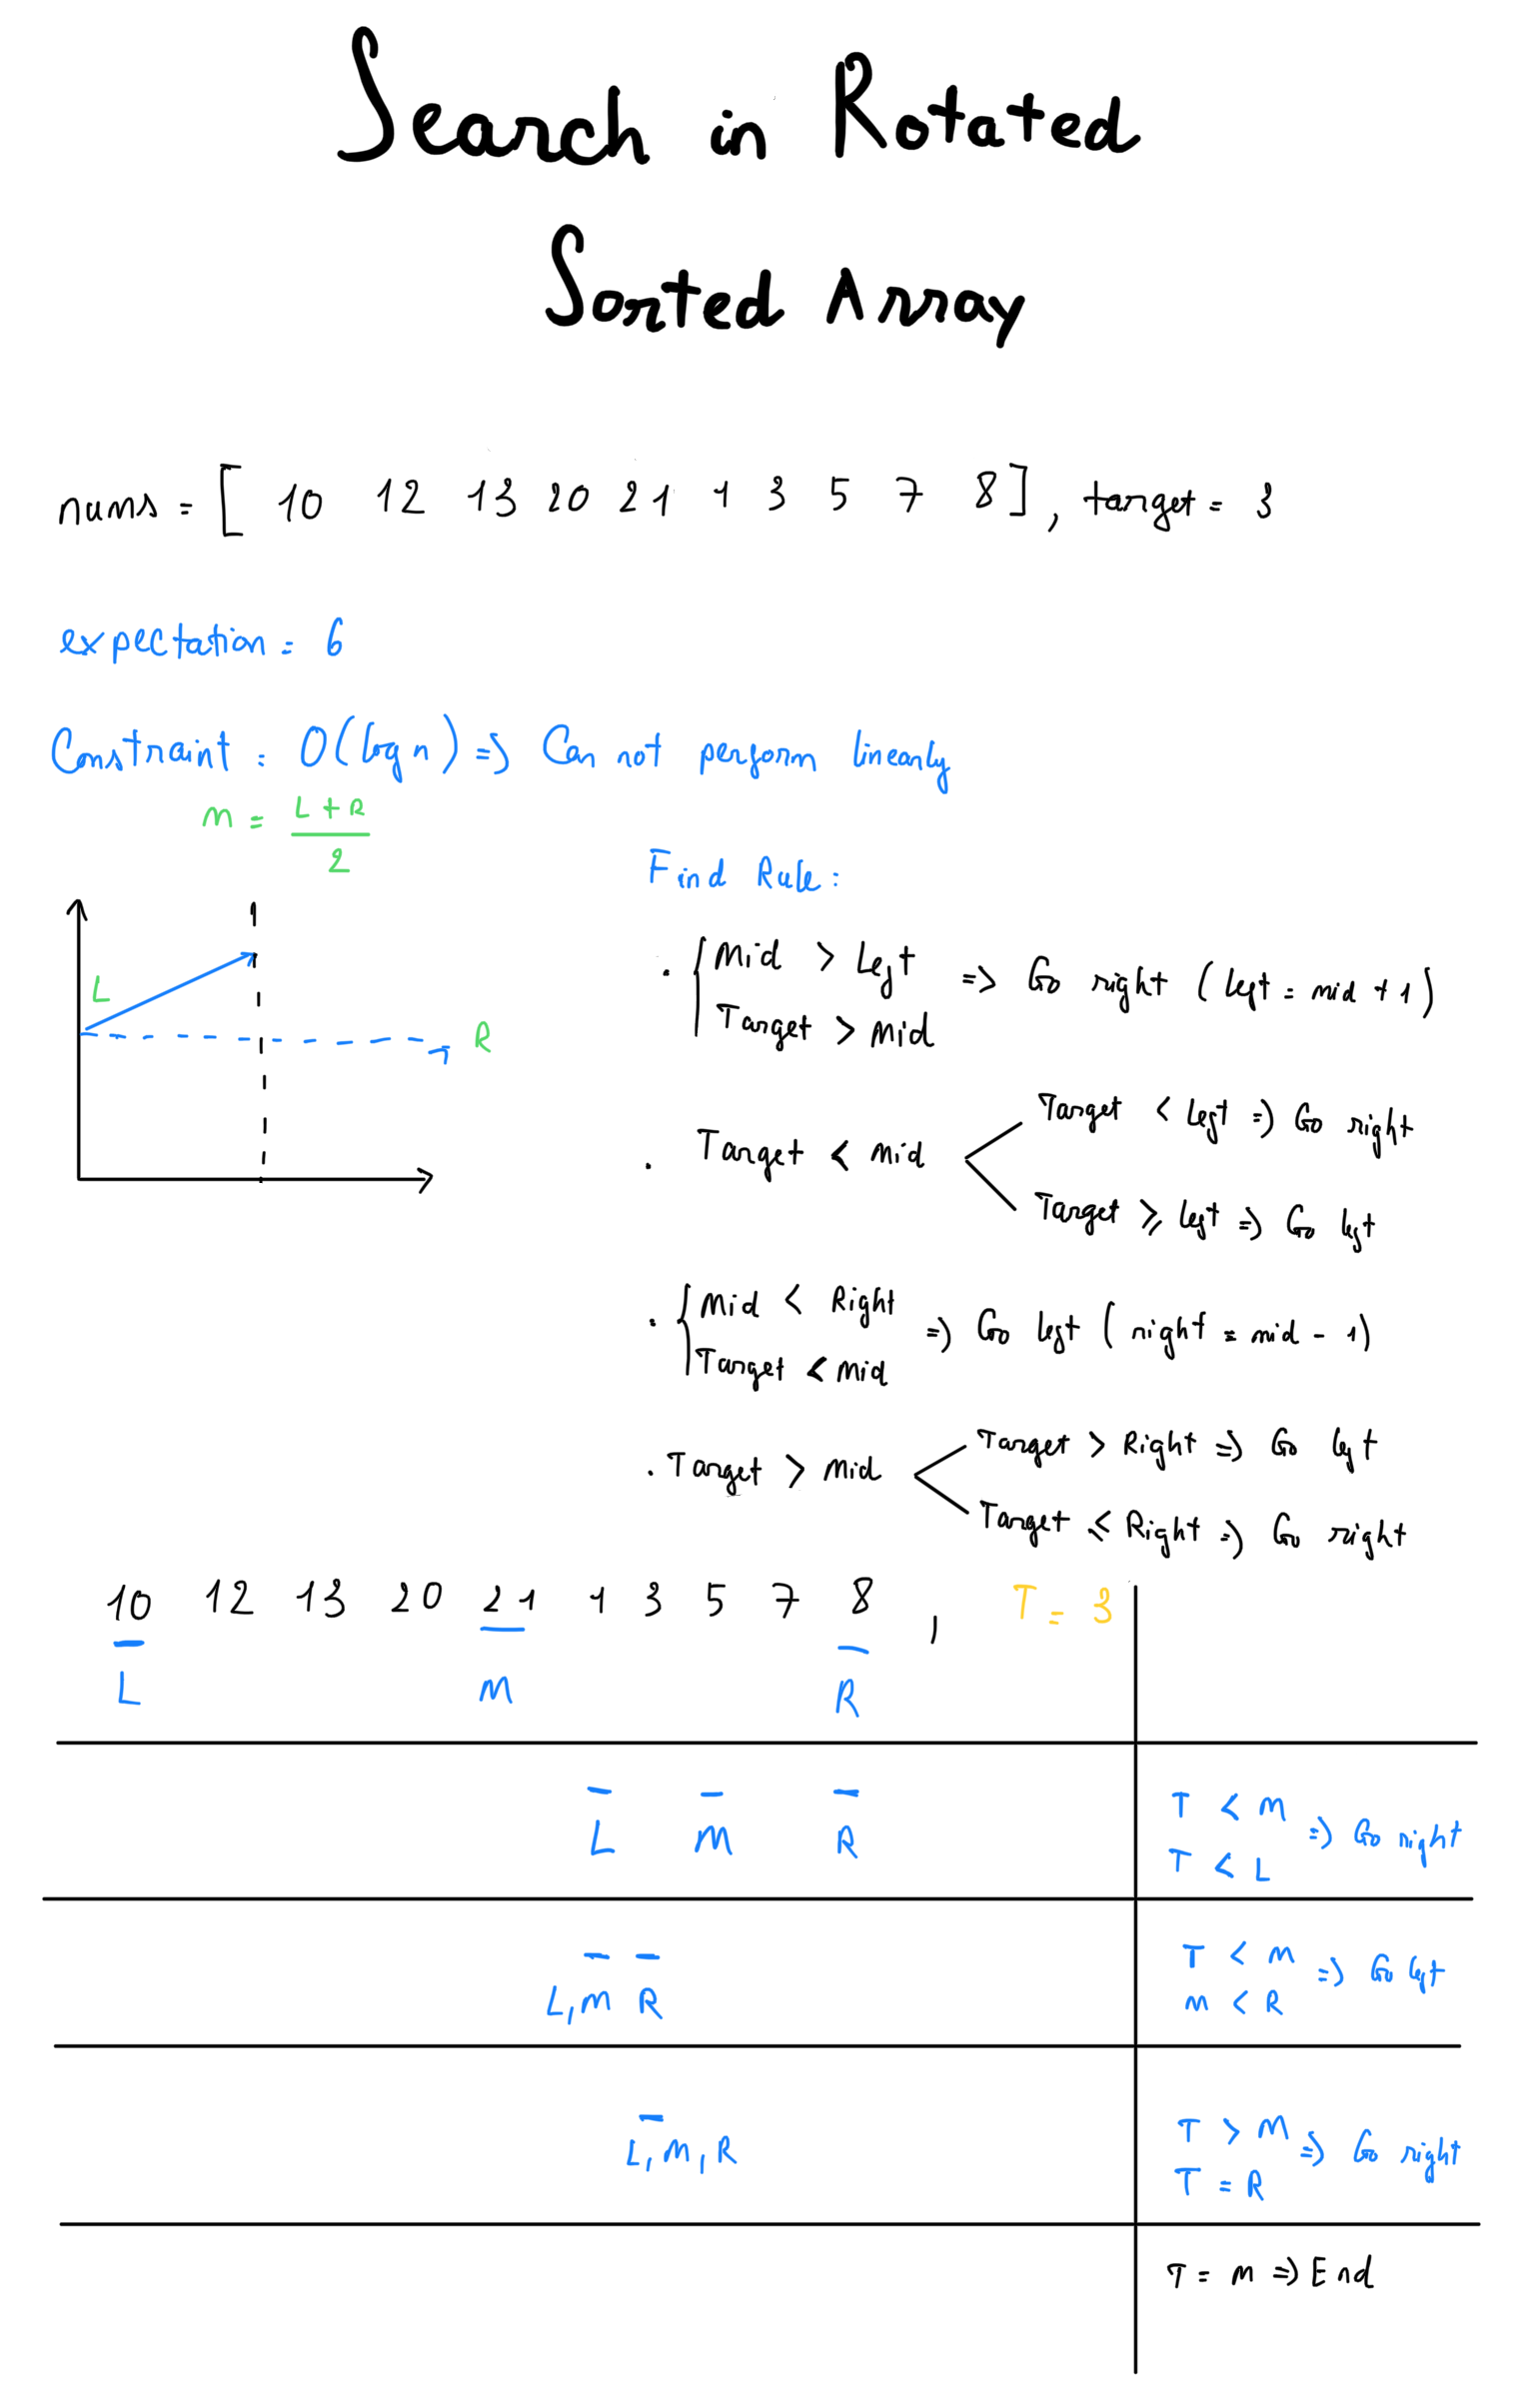 Search in Rotated
Sorted Array
nums = [ 10 12 13 20 21 1 3 5 7 8 ] , target = 3
expectation = 6
Constraint : O(log n) => Can not perform linearly
m = L + R / 2
Find Rule :
L
R
. { Mid > Left
Target > Mid => Go right ( left = mid + 1 )
. Target < Mid
Target < Left => Go right
Target ⩾ left => Go left
. { Mid < Right
Target < Mid => Go left ( right = mid - 1 )
. Target > Mid
Target > Right => Go left
Target ⩽ Right => Go right
10 12 13 20 21 1 3 5 7 8 , T = 3
L M R
L M R
T < M
T < L => Go right
L, M R
T < M
M < R => Go left
L, M, R
T > M
T = R => Go right
T = M => End